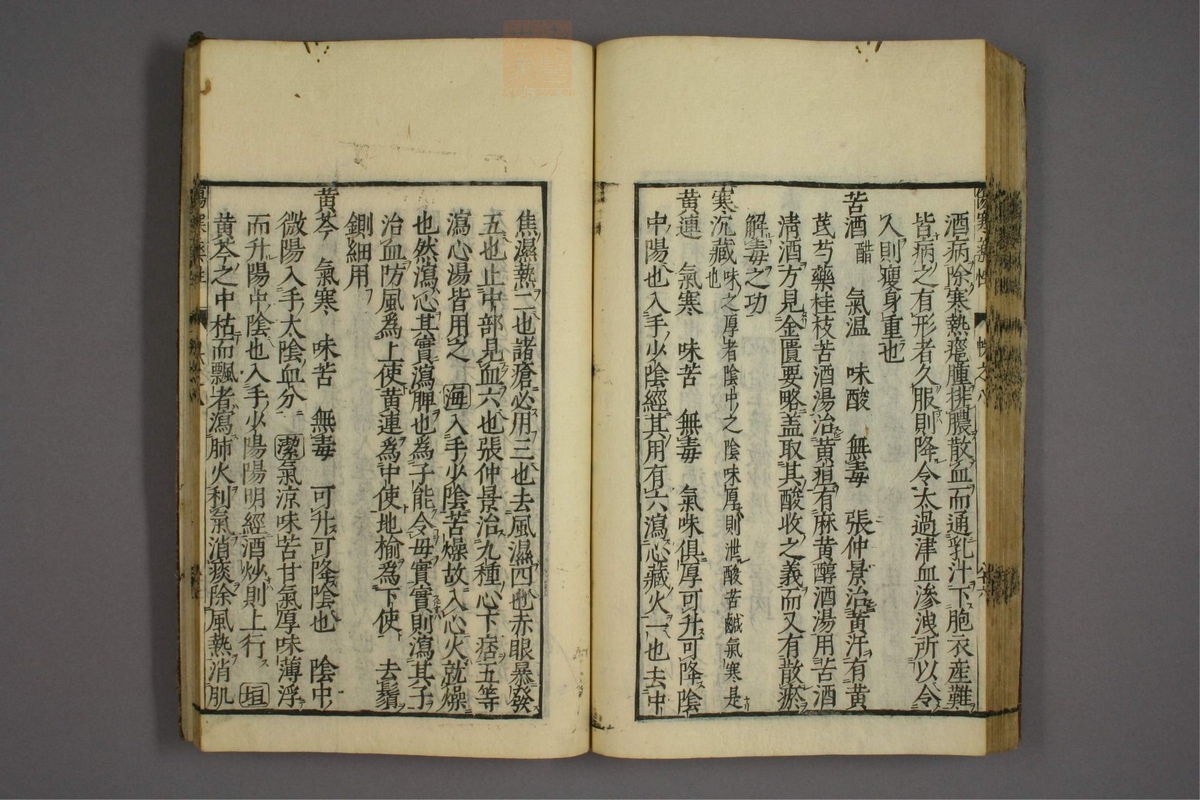 酒病除寒熱癰腫排膿散血而通乳汁下胞衣産難
皆病之有形者久服則降令太過津血滲洩所以令
人則瘦身重也
苦酒 醋 氣温 味酸 無毒 張仲景治黄汗有黄
芪芍藥桂枝苦酒湯治黄疸有麻黄醇酒湯用苦酒
清酒方見金匱要略蓋取其酸收之義而又有散瘀
解毒之功
寒沉藏也 味之厚者陰中之陰味厚則泄酸苦鹹氣寒是
黄連 氣寒 味苦 無毒 氣味俱厚可升可降陰
中陽也入手少陰經其用有六瀉心藏火一也去中
焦濕熱二也諸瘡必用三也去風濕四也赤眼暴發
五也止中部見血六也張仲景治九種心下痞五等
瀉心湯皆用之 海入手少陰苦燥故入心火就燥
也然瀉心其實瀉脾也為子能令母實實則瀉其子
治血防風為上使黄連為中使地榆為下使 去鬚
剉細用
黄芩 氣寒 味苦 無毒 可升可降陰也 陰中
微陽入手太陰血分 潔氣涼味苦甘氣厚味薄浮
而升陽中陰也入手少陽陽明經酒炒則上行 垣
黄芩之中枯而飄者瀉肺火利氣消痰除風熱消肌